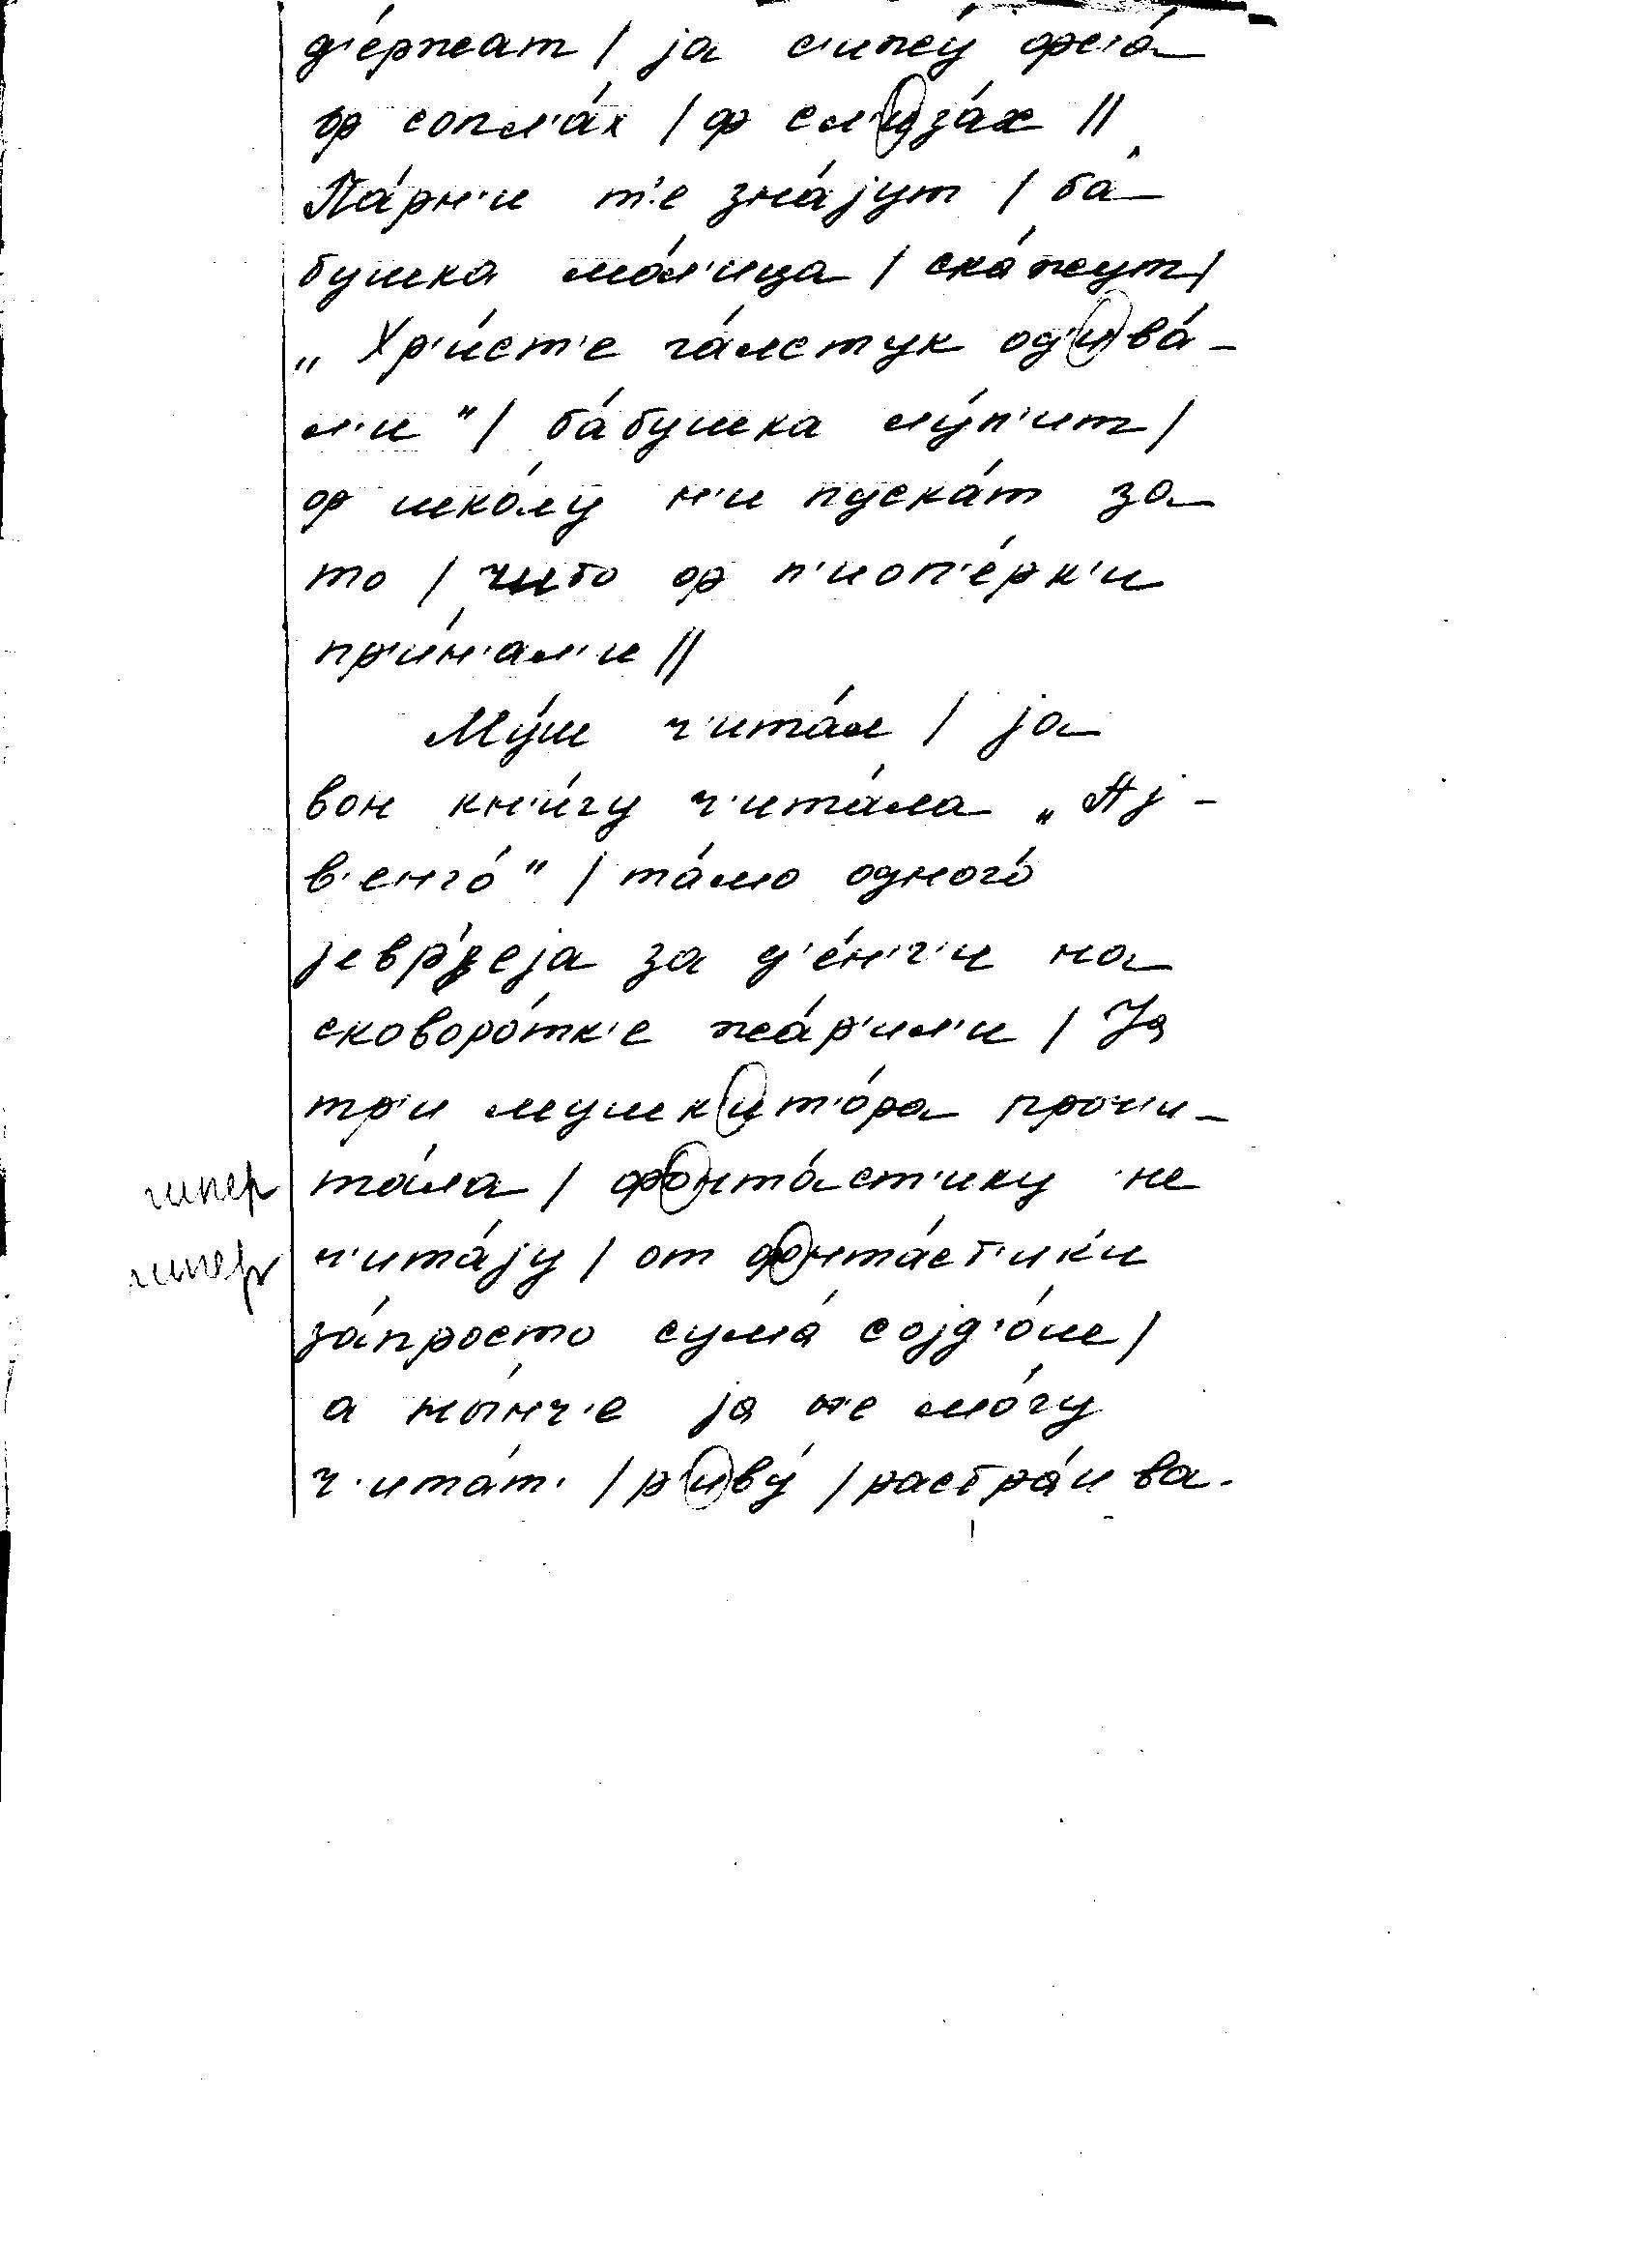 д'е́ржат / ја с'ижу́ фс'а́
ф сопл'а́х / ф сл'иза́х //
Па́рн'и т'е зна́јут / ба́
бушка мо́л'ица / ска́жут /
„Хр'и́ст'е га́лстук од'ива́-
л'и" / ба́бушка лу́п'ит /
ф шко́лу н'и пуска́т за
то / что ф п'иоп'е́рк'и
пр'и́н'ал'и //
Му́ш ч'ита́л / ја
вон кн'и́гу ч'ита́ла „Ај-
в'енго́" / та́мо одного́
јевр'е́ја за д'е́н'г'и на
сковоро́тк'е жа́р'ил'и / Ја
тр'и мушк'ит'о́ра проч'и-
гипер та́ла / фонта́ст'ику не
гипер ч'ита́ју / от фонта́ст'ик'и
за́просто сума́ сојд'о́ш /
а ны́нч'е ја н'е мо́гу
ч'ита́т' / р'иву́ / растра́ива-